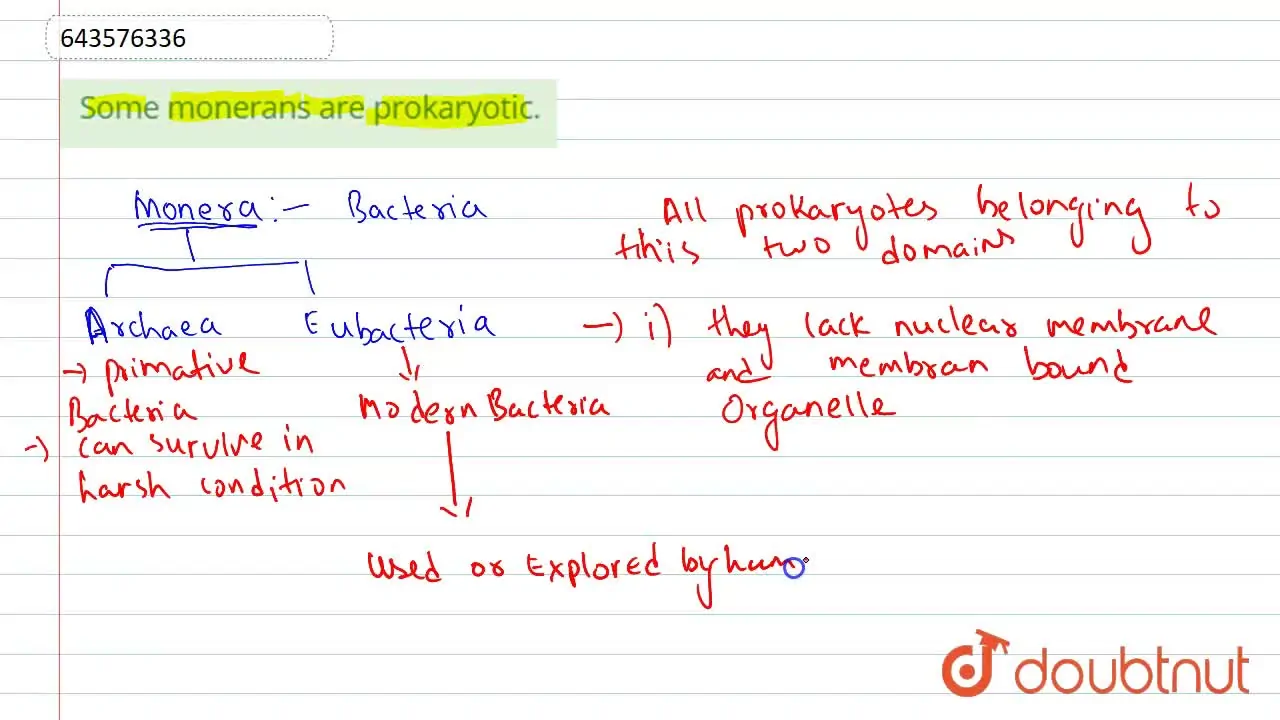 643576336
Some monerans are prokaryotic.
Monera :- Bacteria
Archaea Eubacteria
→ primative
Bacteria
→ can survive in
harsh condition
Modern Bacteria
used or Explored by hum
All prokaryotes belonging to
this two domains
→ i) they lack nuclear membrane
and membran bound
Organelle
doubtnut